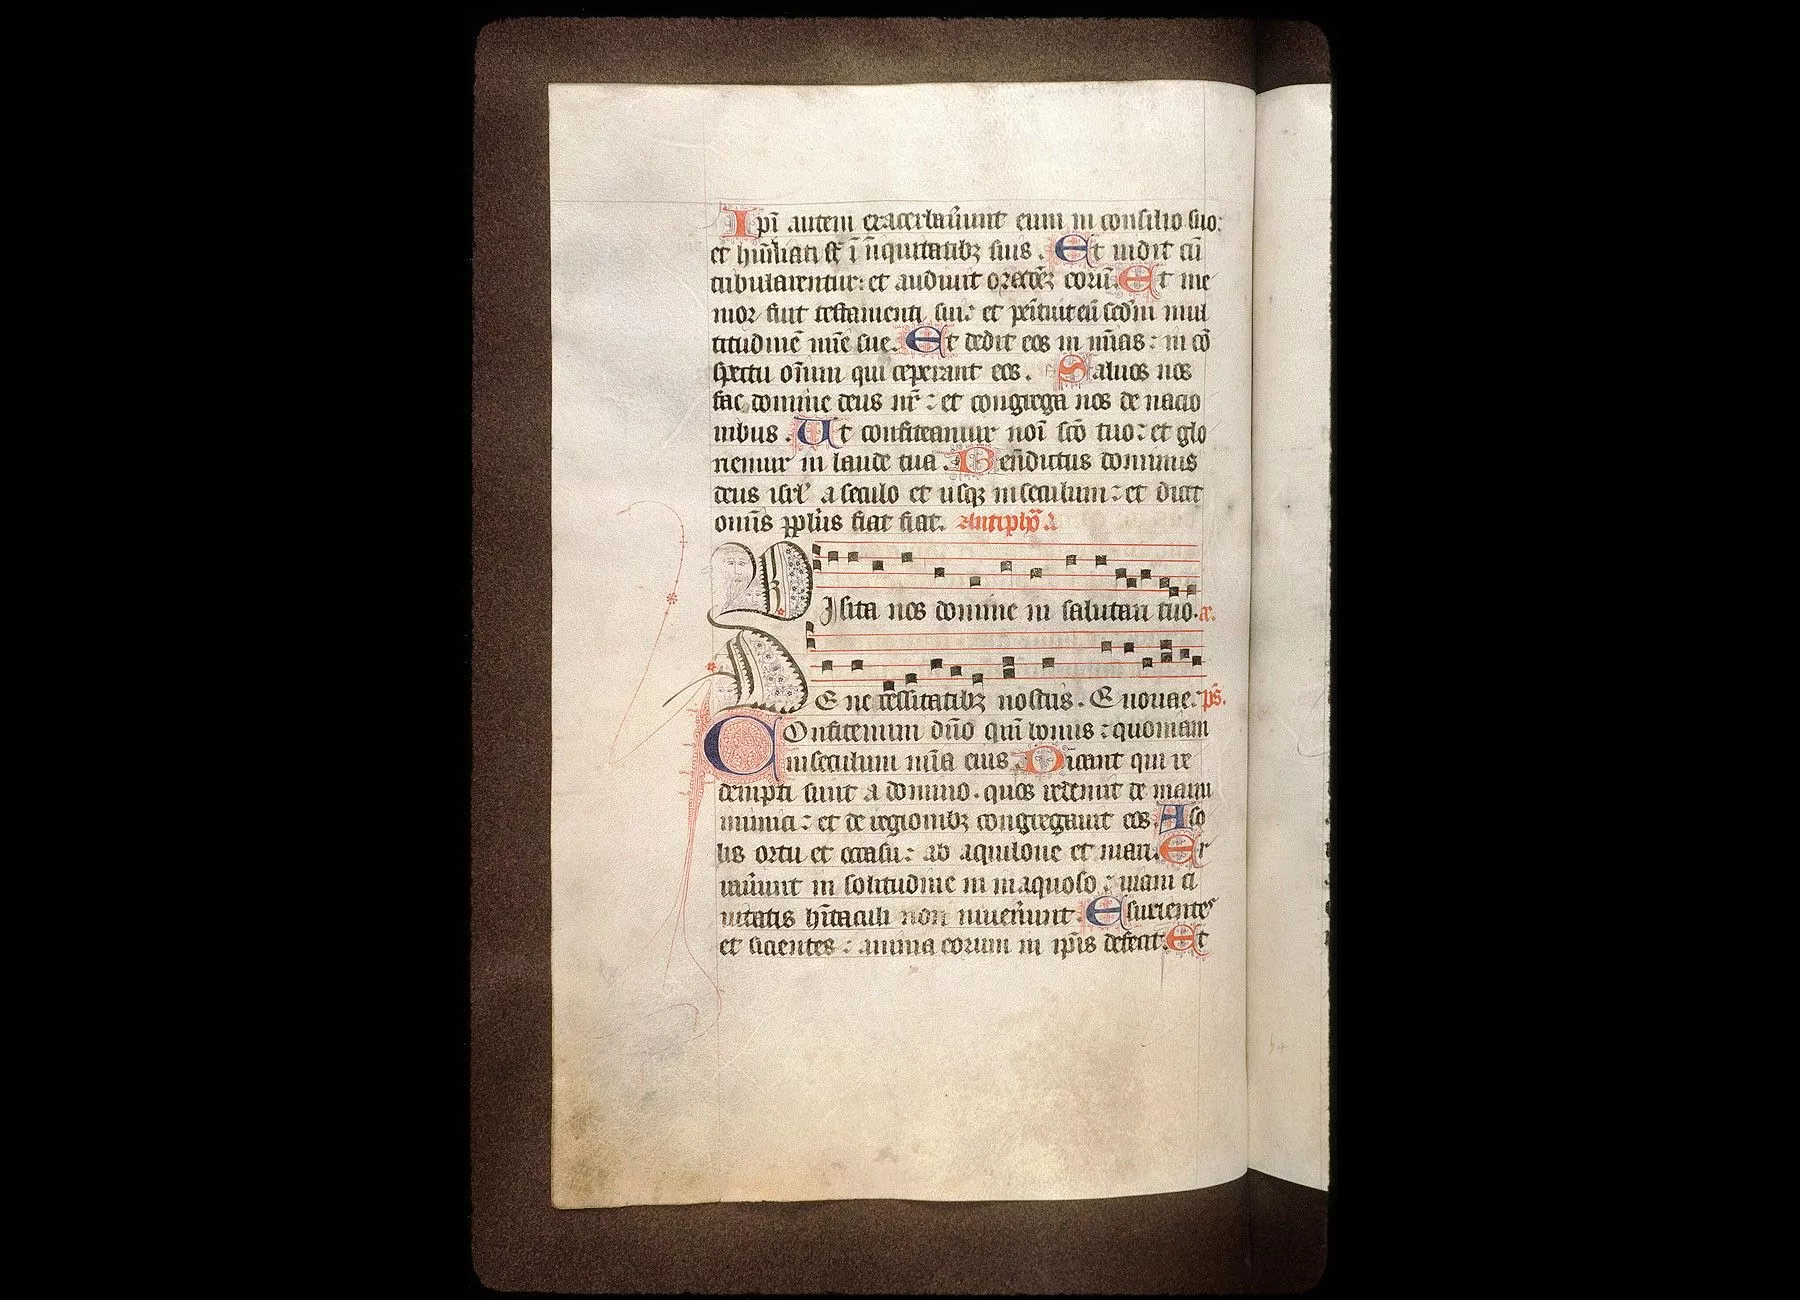 Ipī autem exacerbav̄unt eum in consilio suo:
et hūiliati st̄ ī īiquitatibꝫ suis. Et uidit cū
tribularentur: et audiuit orātōeꝫ eorū. Et me
mor fuit testamenti sui: et pēituit eū scd̄m mul
titudinē mīe sue. Et dedit eos in mīas: in cō
spectu oīum qui ceperant eos. Saluos nos
fac domine deus nr̄: et congrega nos de nacio
nibus. Ut confiteamur noī scō tuo: et glo
riemur in laude tua. Ben̄dictus dominus
deus isrl̄ a seculo et usqꝫ in seculum: et dicet
omīs ppl̄us fiat fiat. Antiphōa
Visita nos domine in salutari tuo. a.
DE necessitatibꝫ nostris. E uouae. ps̄.
COnfitemini dn̄o qm̄ bonus: quoniam
in seculum mīa eius. Dicant qui re
dempti sunt a domino. quos redemit de manu
inimici: et de regionibꝫ congregauit eos. A so
lis ortu et occasu: ab aquilone et mari. Er
rauēunt in solitudine in inaquoso: uiam ci
uitatis hītaculi non inueērunt. Esurientes
et sicientes: anima eorum in ipīs defecit. Et